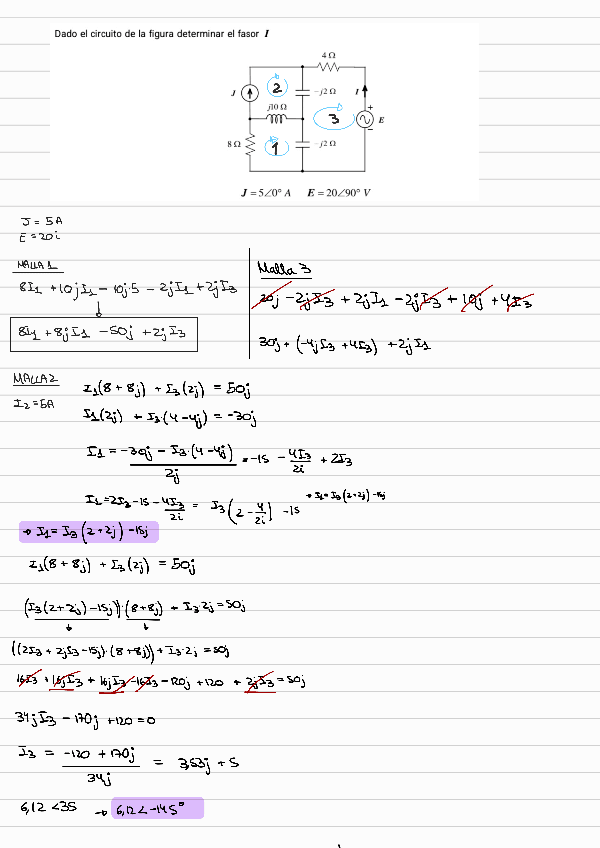 Dado el circuito de la figura determinar el fasor I
4 Ω
J
2
-j2 Ω
I
j10 Ω
3
+
E
-
8 Ω
1
-j2 Ω
J = 5∠0° A E = 20∠90° V
J = 5A
E = 20i
MALLA 1
8I1 + 10jI1 - 10j·5 - 2jI1 + 2jI3
8I1 + 8jI1 - 50j + 2jI3
Malla 3
20j - 2jI3 + 2jI1 - 2jI3 + 10j + 4I3
30j + (-4jI3 + 4I3) + 2jI1
MALLA 2
I2 = 5A
I1(8 + 8j) + I3(2j) = 50j
I1(2j) + I3·(4 - 4j) = -30j
I1 = -30j - I3·(4 - 4j) / 2j = -15 - 4I3 / 2i + 2I3
I1 = 2I3 - 15 - 4I3 / 2i = I3(2 - 4 / 2i) - 15 → I1 = I3(2 + 2j) - 15
→ I1 = I3(2 + 2j) - 15j
I1(8 + 8j) + I3(2j) = 50j
(I3(2 + 2j) - 15j)·(8 + 8j) + I3·2j = 50j
((2I3 + 2jI3 - 15j)·(8 + 8j)) + I3·2j = 50j
16I3 + 16jI3 + 16jI3 - 16I3 - 120j + 120 + 2jI3 = 50j
34jI3 - 170j + 120 = 0
I3 = -120 + 170j / 34j = 3,53j + 5
6,12 < 35 → 6,12 < -145°